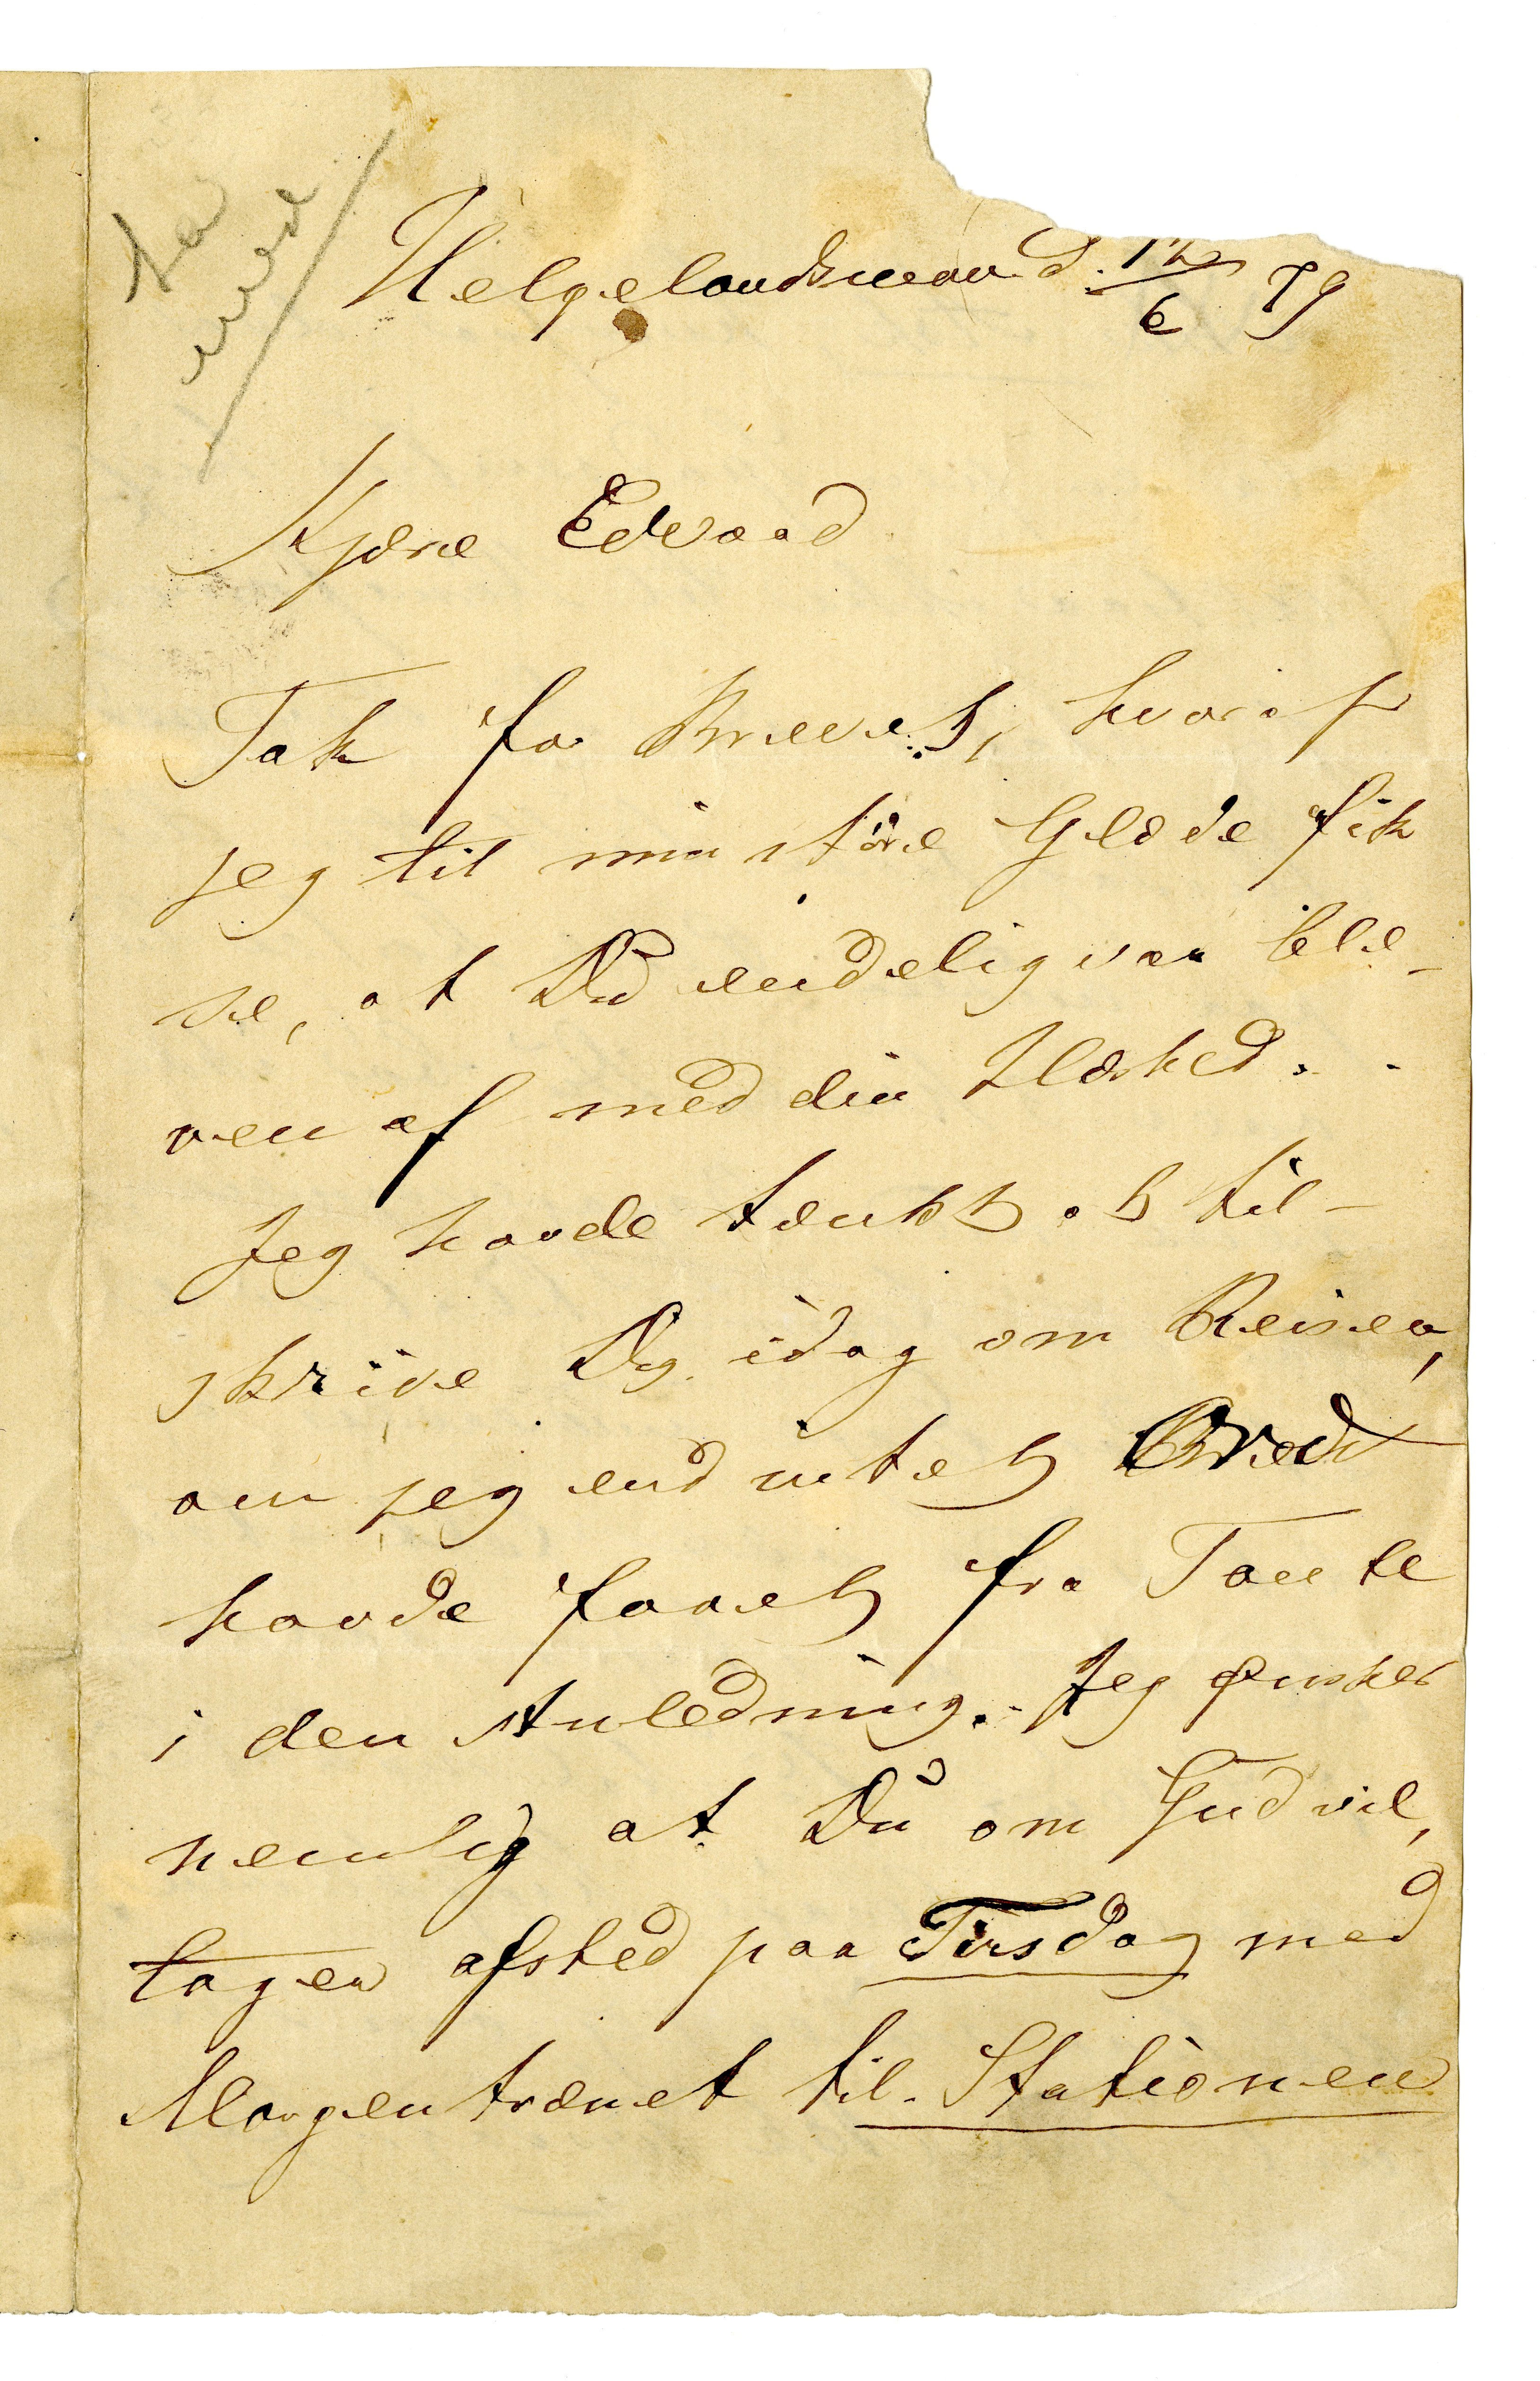 Helgelandsmoen d. 12/6 79
Kjære Edvard
Tak for Brevet, hvoraf
jeg til min store Glæde fik
se, at Du endelig var ble-
ven af med din Hæshed. -
Jeg havde tænkt at til-
skrive Dig idag om Reisen,
om jeg end intet Bred
havde faaet fra Tante
i den Anledning. Jeg ønsker
nemlig at Du om Gud vil,
tager afsted paa Tirsdag med
Morgentrænet til Stationen